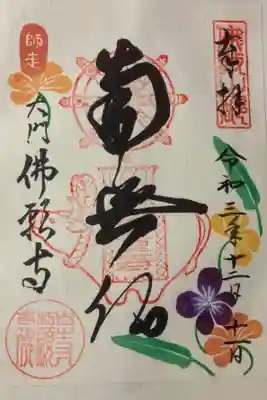 奉拝
令和三年十二月十一日
南無仏
師走
大門佛願寺